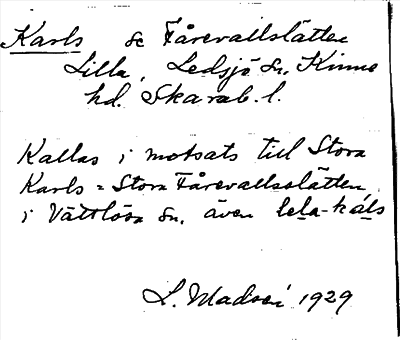 Karls se Fårevallslätten
Lilla, Ledsjö sn. Kinne
hd. Skarab. l.
Kallas i motsats till Stora
Karls = Stora Fårevallsslätten
i Vättlösa sn. även lela-káls
L. Madsén 1929